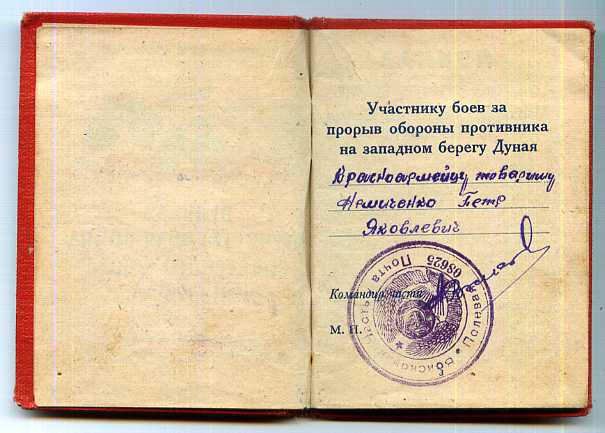 Участнику боев за
прорыв обороны противника
на западном берегу Дуная
Красноармейцу товарищу
Немиченко Петр
Яковлевич
Командир части
М. П.
Полевая Почта 08625 Войсковая часть